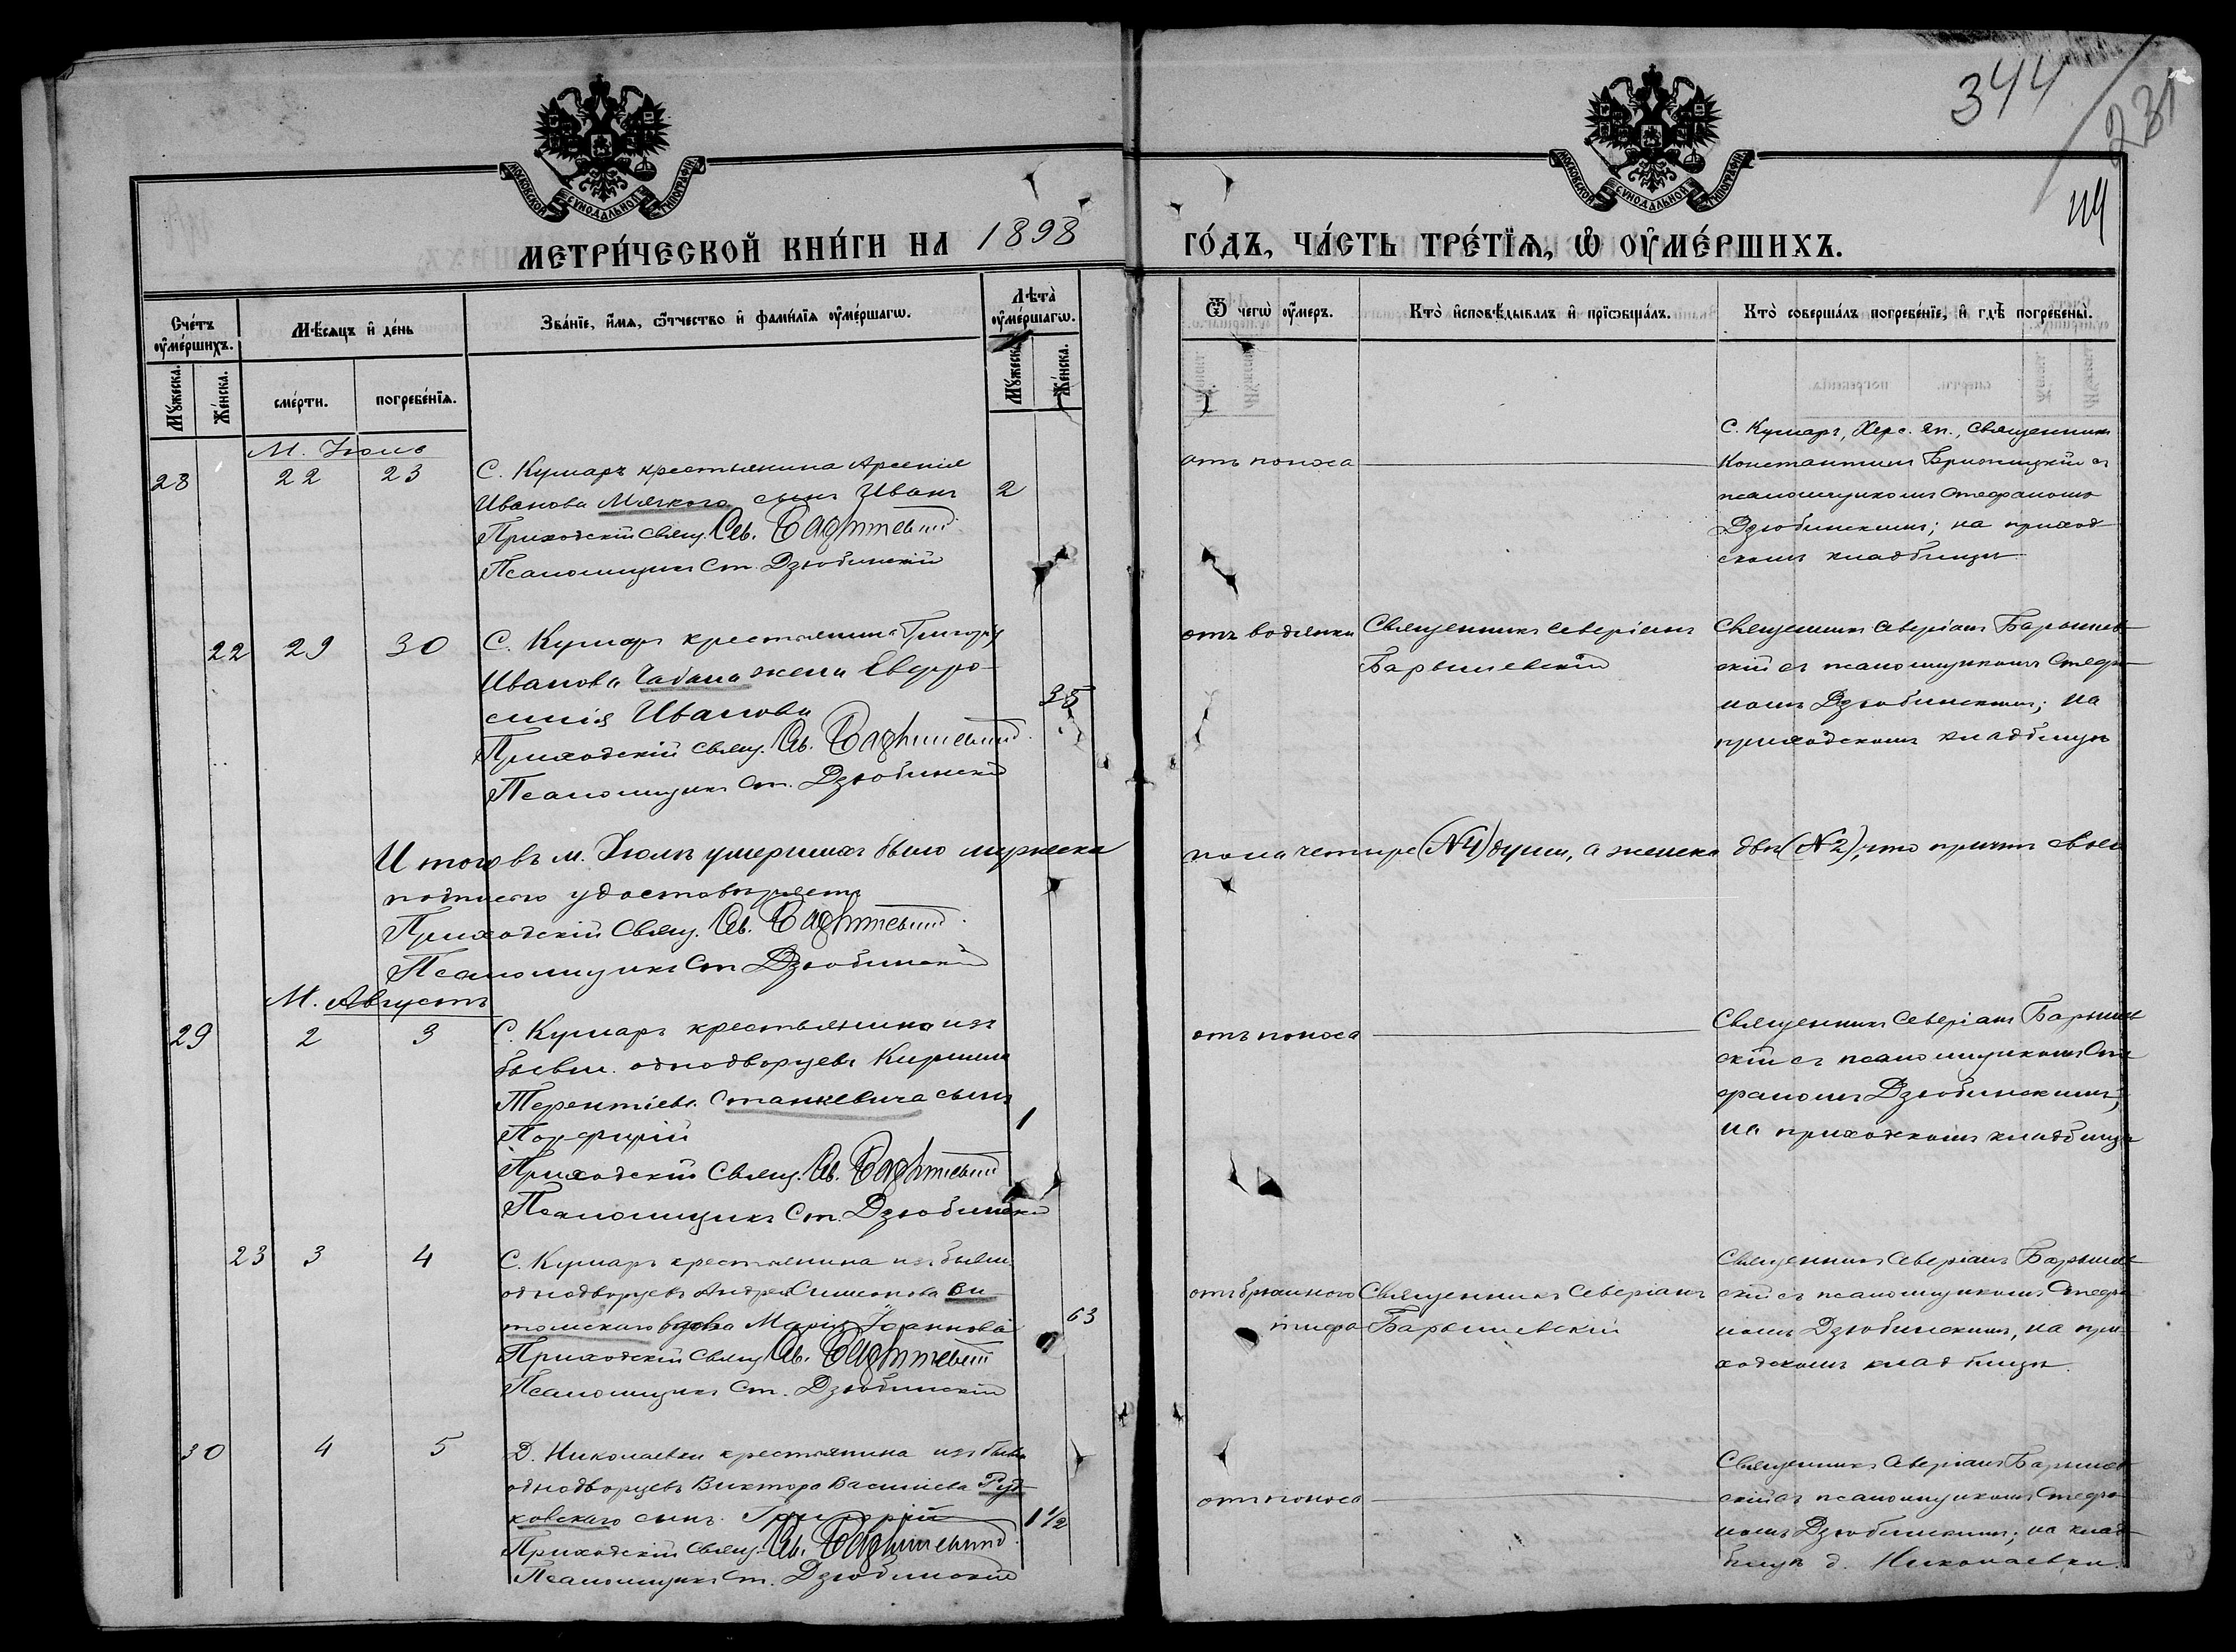 344
231
119
МОСКОВСКОЙ СѴНОДАЛЬНОЙ ТИПОГРАФІИ
МОСКОВСКОЙ СѴНОДАЛЬНОЙ ТИПОГРАФІИ
МЕТРИ́ЧЕСКОЙ КНИ́ГИ НА 1898 ГО́ДЪ, ЧА́СТЬ ТРЕ́ТЇѦ, Ѡ҆ ОУ҆МЕ́РШИХЪ.
Сче́тъ оу҆ме́ршихъ.
Мѣ́сѧцъ и҆ де́нь
Зва́нїе, и҆́мѧ, ѻ҆́тчество и҆ фами́лїѧ оу҆ме́ршагѡ.
Лѣта̀ оу҆ме́ршагѡ.
Ѿ чегѡ̀ оу҆́меръ.
Кто̀ и҆сповѣ́дывалъ и҆ прїѡбща́лъ.
Кто̀ соверша́лъ погребе́нїе, и҆ гдѣ̀ погребены̀.
Мꙋ́жеска.
Же́нска.
сме́рти.
погребе́нїѧ.
Мꙋ́жеска.
Же́нска.
М. Іюль
28 22 23
С. Кумаръ крестьянина Арсенія
Иванова Мягкого сынъ Иванъ 2
Приходскій Свящ. Св. Барышевскій
Псаломщикъ Ст. Дзюбинскій
отъ поноса
С. Кумаръ, Херс. еп., Священникъ
Константинъ съ
псаломщикомъ Стефаномъ
Дзюбинскимъ; на приход-
скомъ кладбищѣ
22 29 30
С. Кумаръ крестьянина Григорія
Иванова Чабана жена Евфро-
синія Иванова 35
Приходскій Свящ. Св. Барышевскій
Псаломщикъ Ст. Дзюбинскій
отъ водянки
Священникъ Северіанъ
Барышевскій
Священникъ Северіанъ Барышев-
скій съ псаломщикомъ Стефа-
номъ Дзюбинскимъ; на
приходскомъ кладбищѣ
Итого въ м. Іюлѣ умершихъ было мужеска пола четыре (№ 4) души, а женска двѣ (№ 2), что причтъ своею
подписью удостовѣряетъ
Приходскій Свящ. Св. Барышевскій
Псаломщикъ Ст. Дзюбинскій
М. Августъ
29 2 3
С. Кумаръ крестьянина изъ
бывш. однодворцевъ Кирилла
Терентіева Станкевича сынъ
Порфирій 1
Приходскій Свящ. Св. Барышевскій
Псаломщикъ Ст. Дзюбинскій
отъ поноса
Священникъ Северіанъ Барышев-
скій съ псаломщикомъ Сте-
фаномъ Дзюбинскимъ;
на приходскомъ кладбищѣ
23 3 4
С. Кумаръ крестьянина изъ бывш.
однодворцевъ Андрея Симеонова Ви-
томскаго вдова Марія Іоаннова 63
Приходскій Свящ. Св. Барышевскій
Псаломщикъ Ст. Дзюбинскій
отъ брюшного
тифа
Священникъ Северіанъ
Барышевскій
Священникъ Северіанъ Барышев-
скій съ псаломщикомъ Стефа-
номъ Дзюбинскимъ, на при-
ходскомъ кладбищѣ.
30 4 5
Д. Николаевки крестьянина изъ бывш.
однодворцевъ Виктора Василіева Руд-
ковскаго сынъ Григорій 1½
Приходскій Свящ. Св. Барышевскій
Псаломщикъ Ст. Дзюбинскій
отъ поноса
Священникъ Северіанъ Барышев-
скій съ псаломщикомъ Стефа-
номъ Дзюбинскимъ; на клад-
бищѣ д. Николаевки.